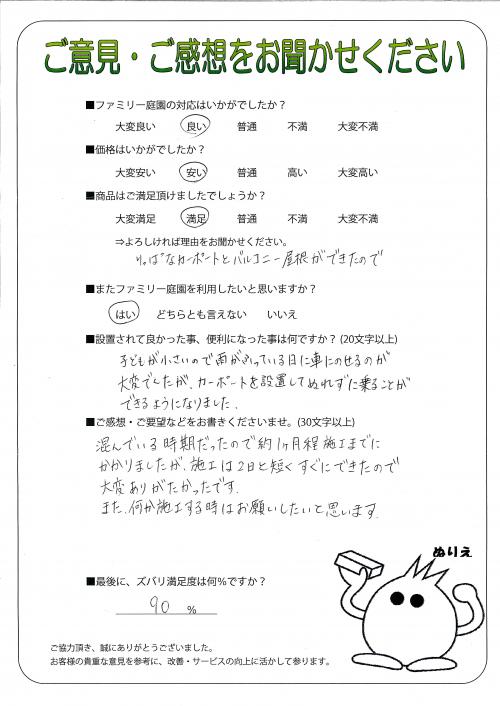 ご意見・ご感想をお聞かせください
■ファミリー庭園の対応はいかがでしたか？
大変良い 良い 普通 不満 大変不満
■価格はいかがでしたか？
大変安い 安い 普通 高い 大変高い
■商品はご満足頂けましたでしょうか？
大変満足 満足 普通 不満 大変不満
⇒よろしければ理由をお聞かせください。
りっぱなカーポートとバルコニー屋根ができたので
■またファミリー庭園を利用したいと思いますか？
はい どちらとも言えない いいえ
■設置されて良かった事、便利になった事は何ですか？(20文字以上)
子どもが小さいので雨がふっている日に車にのせるのが
大変でしたが、カーポートを設置してぬれずに乗ることが
できるようになりました。
■ご感想・ご要望などをお書きくださいませ。(30文字以上)
混んでいる時期だったので約1ヶ月程施工までに
かかりましたが、施工は2日と短くすぐにできたので
大変ありがたかったです。
また、何か施工する時はお願いしたいと思います。
ぬりえ
■最後に、ズバリ満足度は何％ですか？
90 ％
ご協力頂き、誠にありがとうございました。
お客様の貴重な意見を参考に、改善・サービスの向上に活かして参ります。